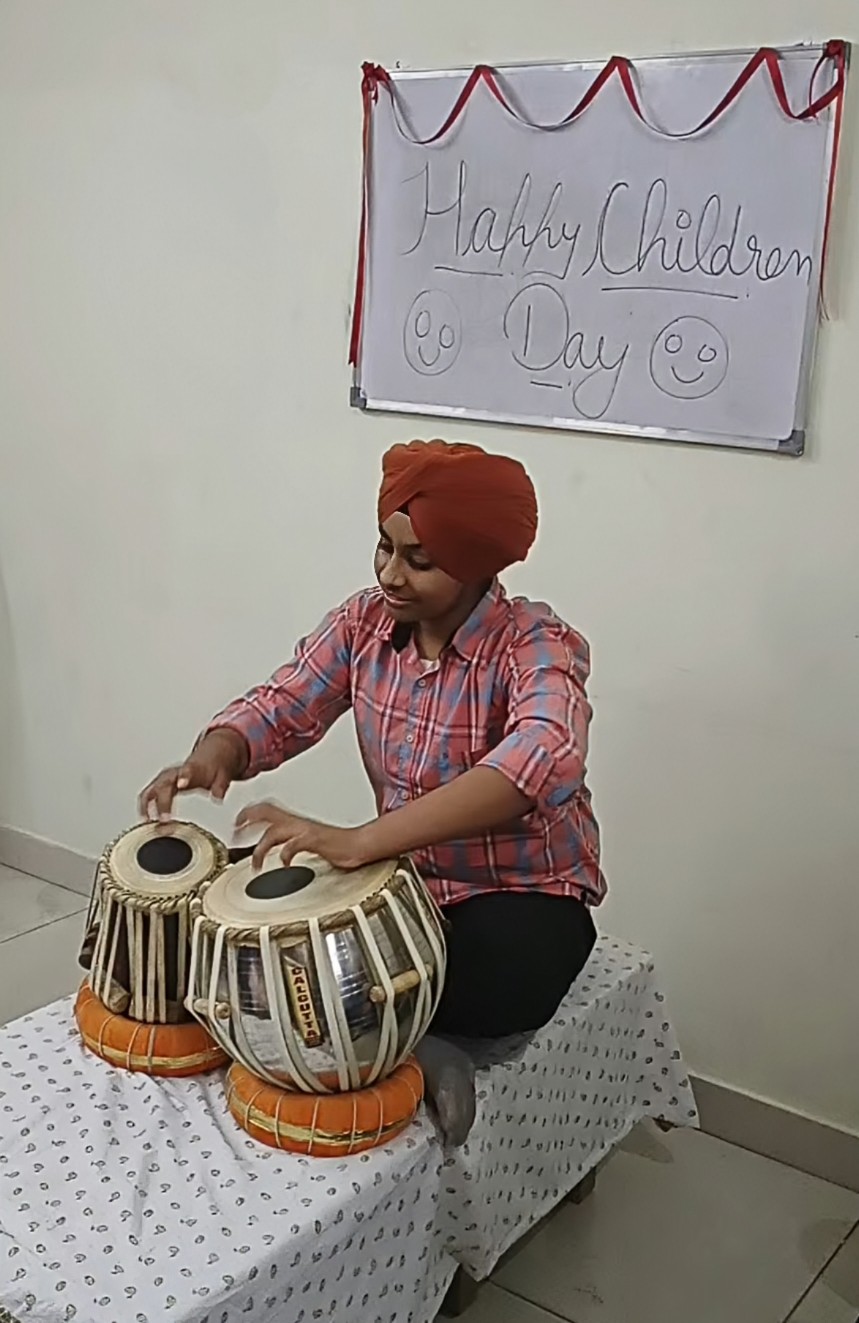 Happy Children
Day
CALCUTTA